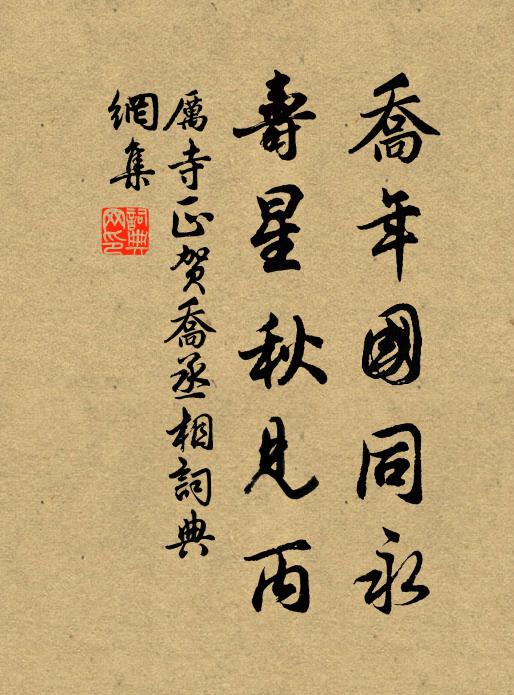 喬年國同永
壽星秋見丙
厲寺正賀喬丞相詞典
網集
詞典網印